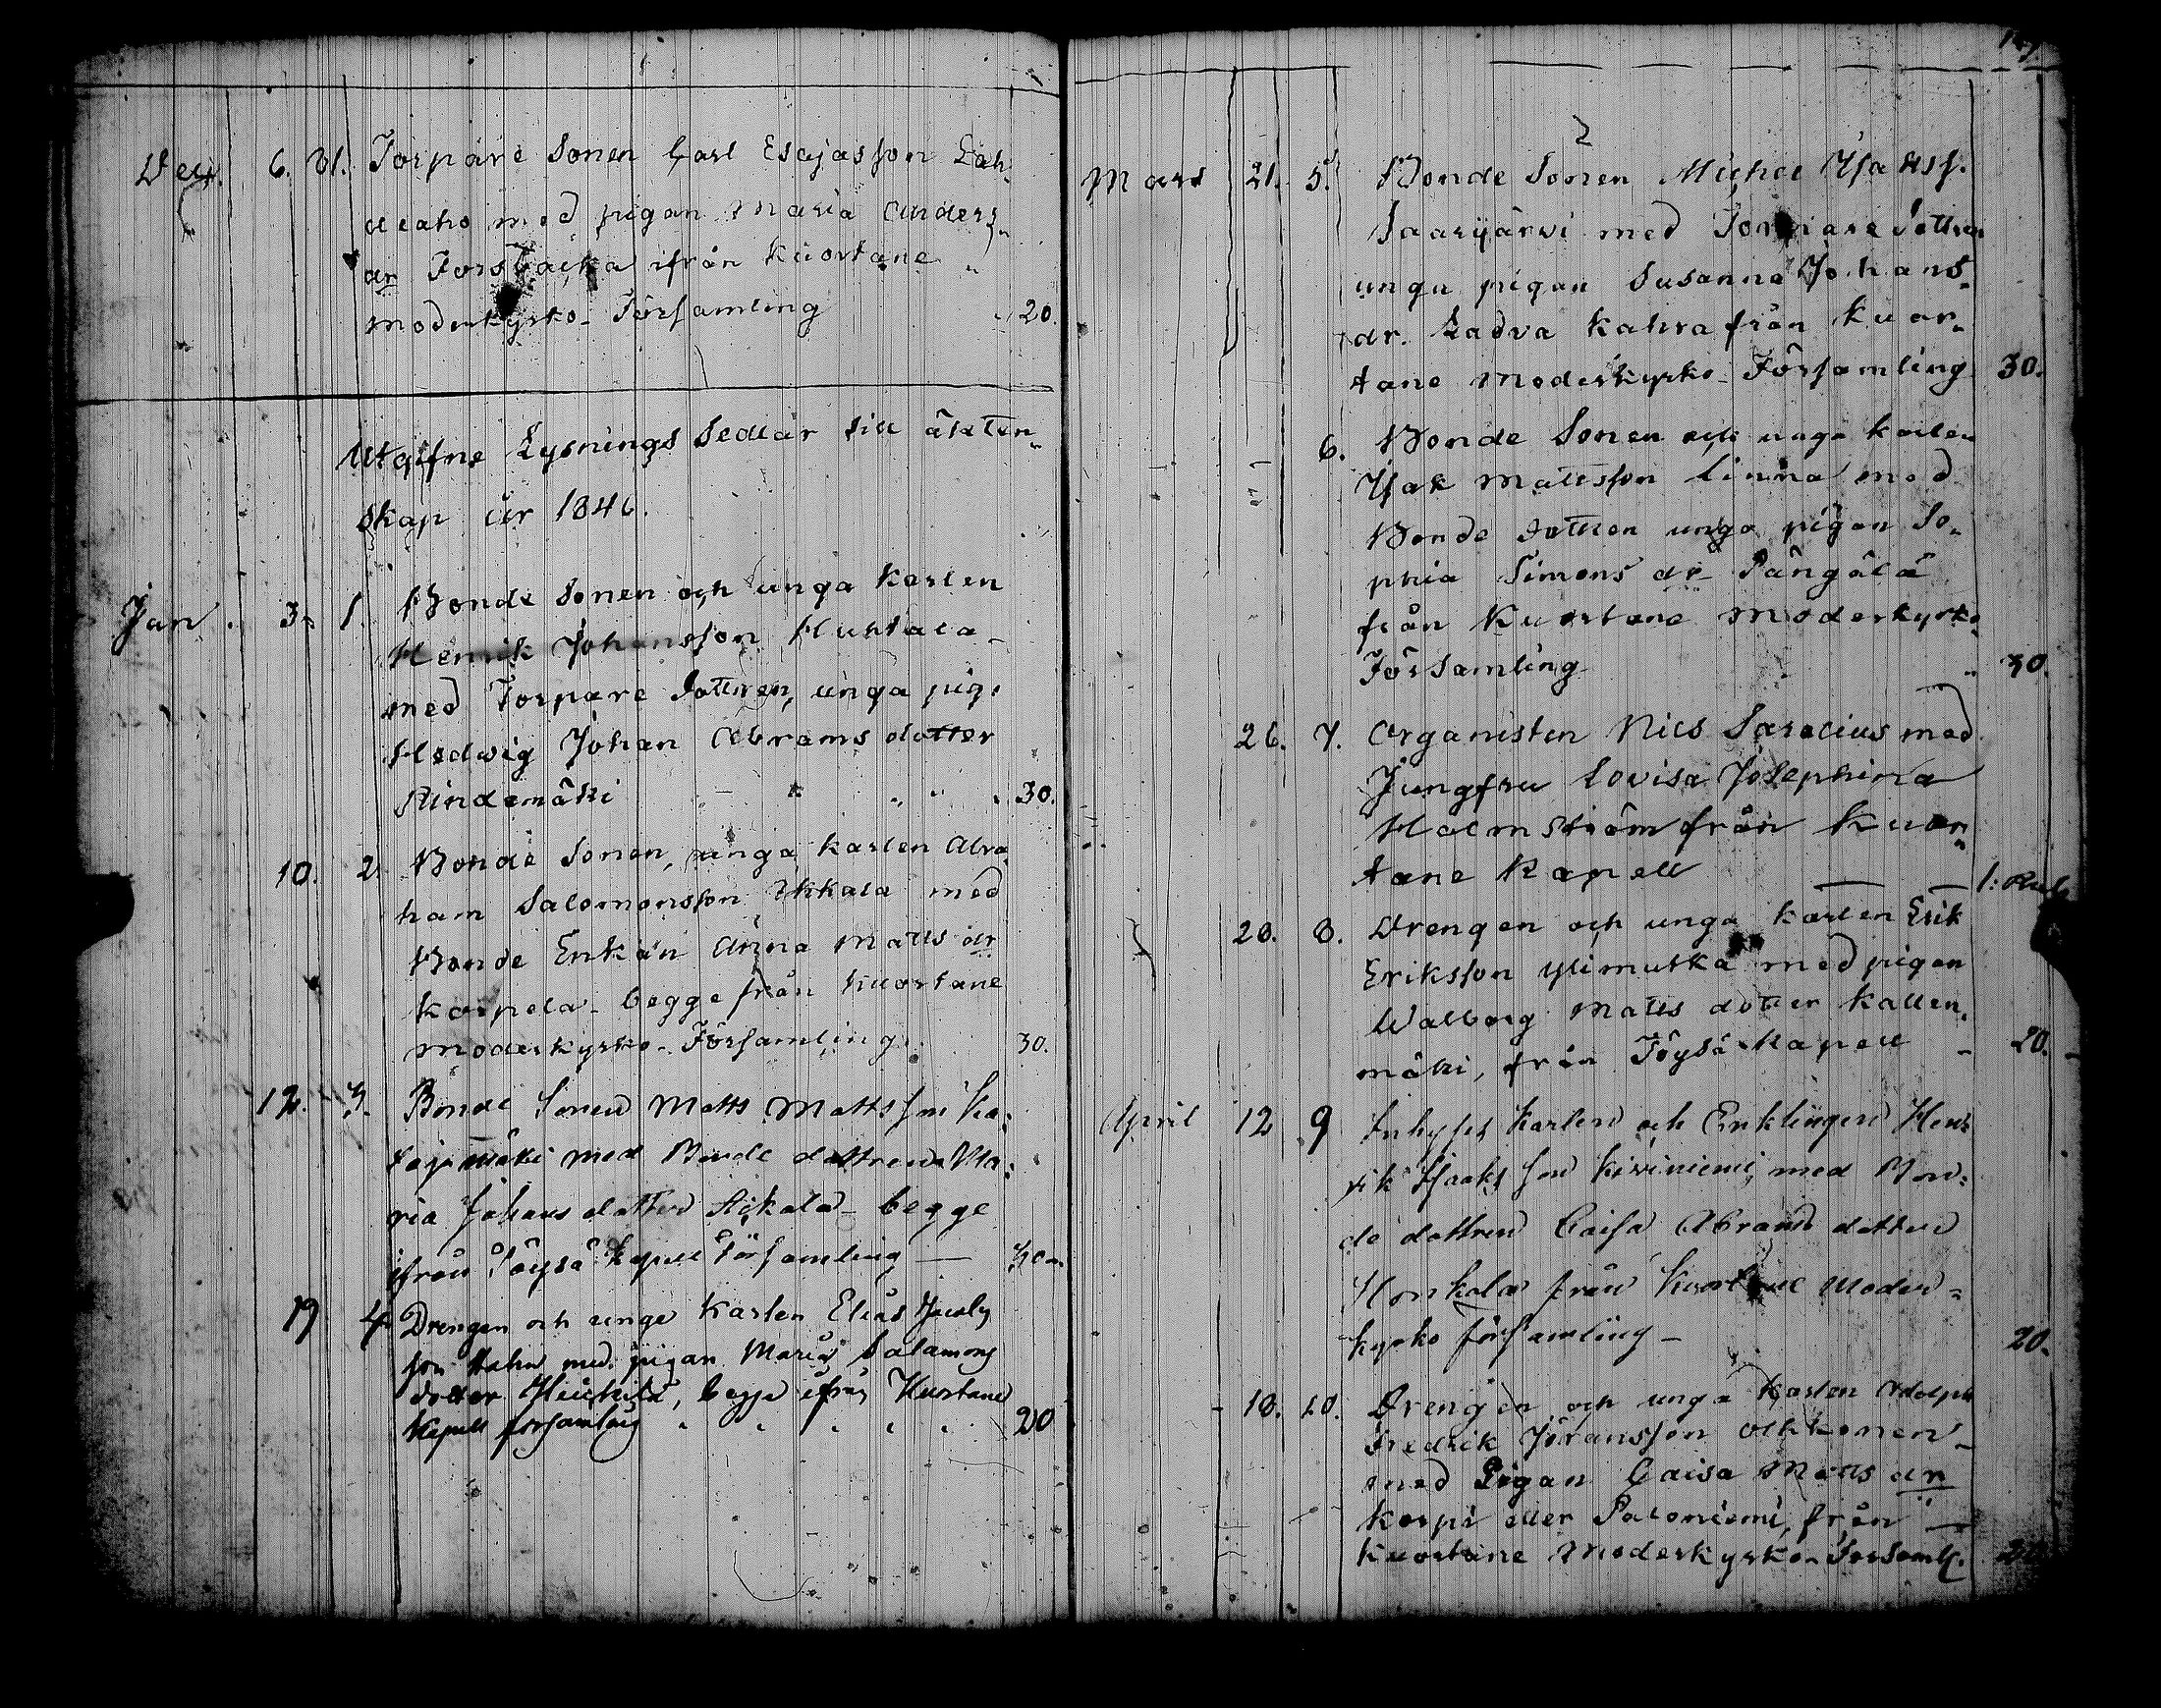 Dec. 6. 31. Torpare Sonen Carl Esajasson Lah-
deaho med pigan Maria Anders-
dr Forsbacka ifrån Kuortane
moderkyrko-Församling 20.
Utgifne Lysnings Sedlar till äkten-
skap år 1846.
Jan. 3. 1. Bonde Sonen och unga karlen
Henrik Johansson Huhtala
med Torpare dottren, unga pig.
Hedwig Johan Abrams dotter
Rindamäki 30.
10. 2. Bonde Sonen, unga karlen Abra
ham Salomonsson Ikkala med
Bonde Enkan Anna Matts dr
Korpela begge från Kuortane
moderkyrko-Församling. 30.
12. 3. Bonde Sonen Matts Mattsson
med Bonde dottren Ma:
ria Johans dotter begge
ifrån Töysä kapell Församling — 30.
19 4. Drengen och unge Karlen Elias Jacobs
son med pigan Maria Salamons
dotter begge ifrån Kuortane
Kapell församling 20
Mars 21. 5. Bonde Sonen Michel Isakss.
Saarijärvi med Torpare dottren
unga pigan Susanna Johans-
dr. Ladva Kahra från Kuor-
tane moderkyrko-Församling 30.
6. Bonde Sonen och unga karlen
Isak Mattsson Linna med
Bonde dottren unga pigan So-
phia Simons dr Långälä
från Kuortane moderkyrko-
Församling 30.
26. 7. Organisten Nils Saracius med
Jungfru Lovisa Josephina
Halmström från Kuor-
tane Kapell 1: Rub.
28. 8. Drengen och unga karlen Erik
Eriksson Ylimutka med pigan
Walborg Matts dotter Kallen-
mäki, från Töysä Kapell - 20.
April 12 9 Inhyses Karlen och Enklingen Hen-
rik Isaaks son Kiviniemi, med Bon:
de dottren Caisa Abrams dotter
Honkola från Kuortane Moder-
kyrko församling - 20.
18. 10. Drengen och unga karlen Adolph
Fredrik Jöransson Olkkonen
med Pigan Caisa Matts dr
Korpi eller Paloniemi, från
Kuortane moderkyrko-Församl.